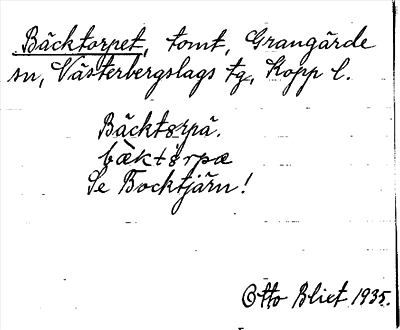 Bäcktorpet, tomt, Grangärde
sn, Västerbergslags tg, Kopp l.
Bäcktorpä.
bæktorpæ
Se Bocktjärn!
Otto Blixt 1935.